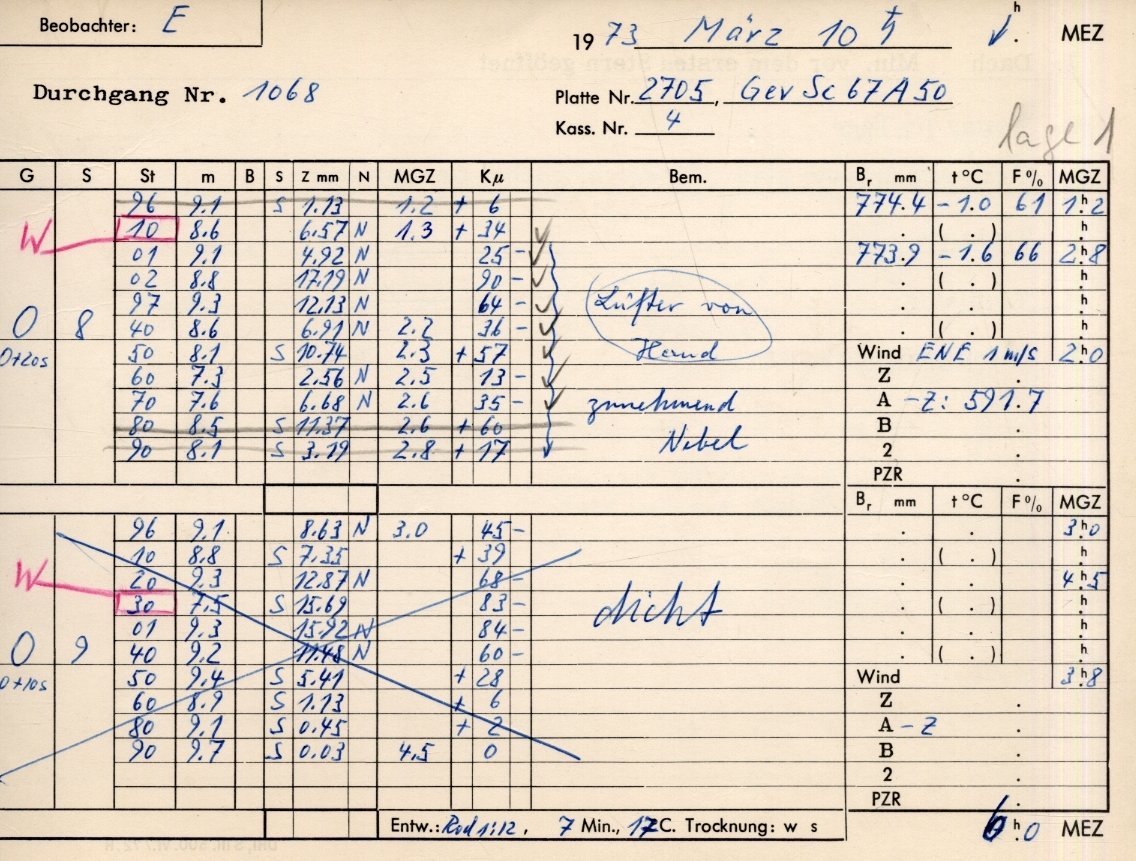 Beobachter: E
1973 März 10 ♄ h . MEZ
Durchgang Nr. 1068
Platte Nr. 2705, Gev Sc 67 A 50
Kass. Nr. 4
Lage 1
G S St m B S Z mm N MGZ Kμ Bem. Br mm t °C F % MGZ
96 9.1 S 1.13 1.2 + 6 774.4 -1.0 61 1h.2
W 10 8.6 6.57 N 1.3 + 34 . ( . ) h.
01 9.1 4.92 N 25 - 773.9 -1.6 66 2h.8
02 8.8 17.19 N 90 - . ( . ) h.
97 9.3 12.13 N 64 - Lüfter von . . h.
0 8 40 8.6 6.91 N 2.2 36 - . ( . ) h.
0+20s 50 8.1 S 10.74 2.3 + 57 Hand Wind ENE 1 m/s 2h.0
60 7.3 2.56 N 2.5 13 - Z .
70 7.6 6.68 N 2.6 35 - zunehmend A -Z: 591.7
80 8.5 S 11.37 2.6 + 60 B .
90 8.1 S 3.19 2.8 + 17 Nebel 2 .
PZR .
Br mm t °C F % MGZ
96 9.1 8.63 N 3.0 45 - . . 3h.0
10 8.8 S 7.35 + 39 . ( . ) h.
W 20 9.3 12.87 N 68 - . . 4h.5
30 7.5 S 15.69 83 - dicht . ( . ) h.
01 9.3 15.92 N 84 - . . h.
0 9 40 9.2 11.48 N 60 - . ( . ) h.
0+10s 50 9.4 S 5.41 + 28 Wind 3h.8
60 8.9 S 1.13 + 6 Z .
80 9.1 S 0.45 + 2 A - Z .
90 9.7 S 0.03 4.5 0 B .
2 .
PZR .
Entw.: Rod 1:12, 7 Min., 17 C. Trocknung: w s 6h.0 MEZ